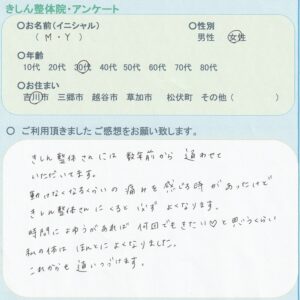 きしん整体院・アンケート
○お名前(イニシャル)
( M・Y )
○性別
男性 女性
○年齢
10代 20代 30代 40代 50代 60代 70代 80代
○お住まい
吉川市 三郷市 越谷市 草加市 松伏町 その他( )
○ ご利用頂きました ご感想をお願い致します。
きしん整体さんには 数年前から 通わせて
いただいてます。
動けなくなるくらいの 痛みを 感じる時 があったけど
きしん整体さんに くると 必ず よくなります。
時間に よゆうがあれば 何回でもきたい♡と 思うくらい
私の体は ほんとに よくなりました。
これからも 通いつづけます。